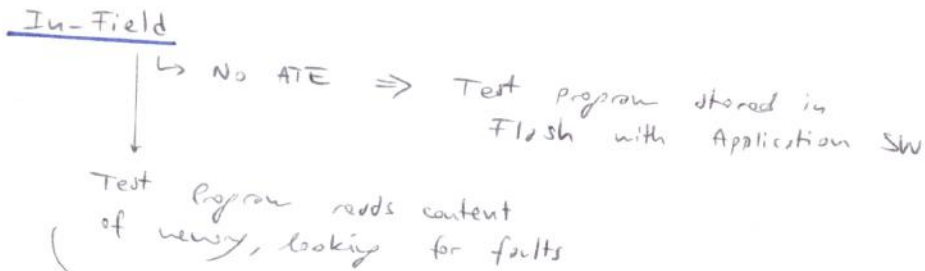 In-Field
↳ No ATE ⇒ Test program stored in
Flash with Application SW
Test Program reads content
of memory, looking for faults